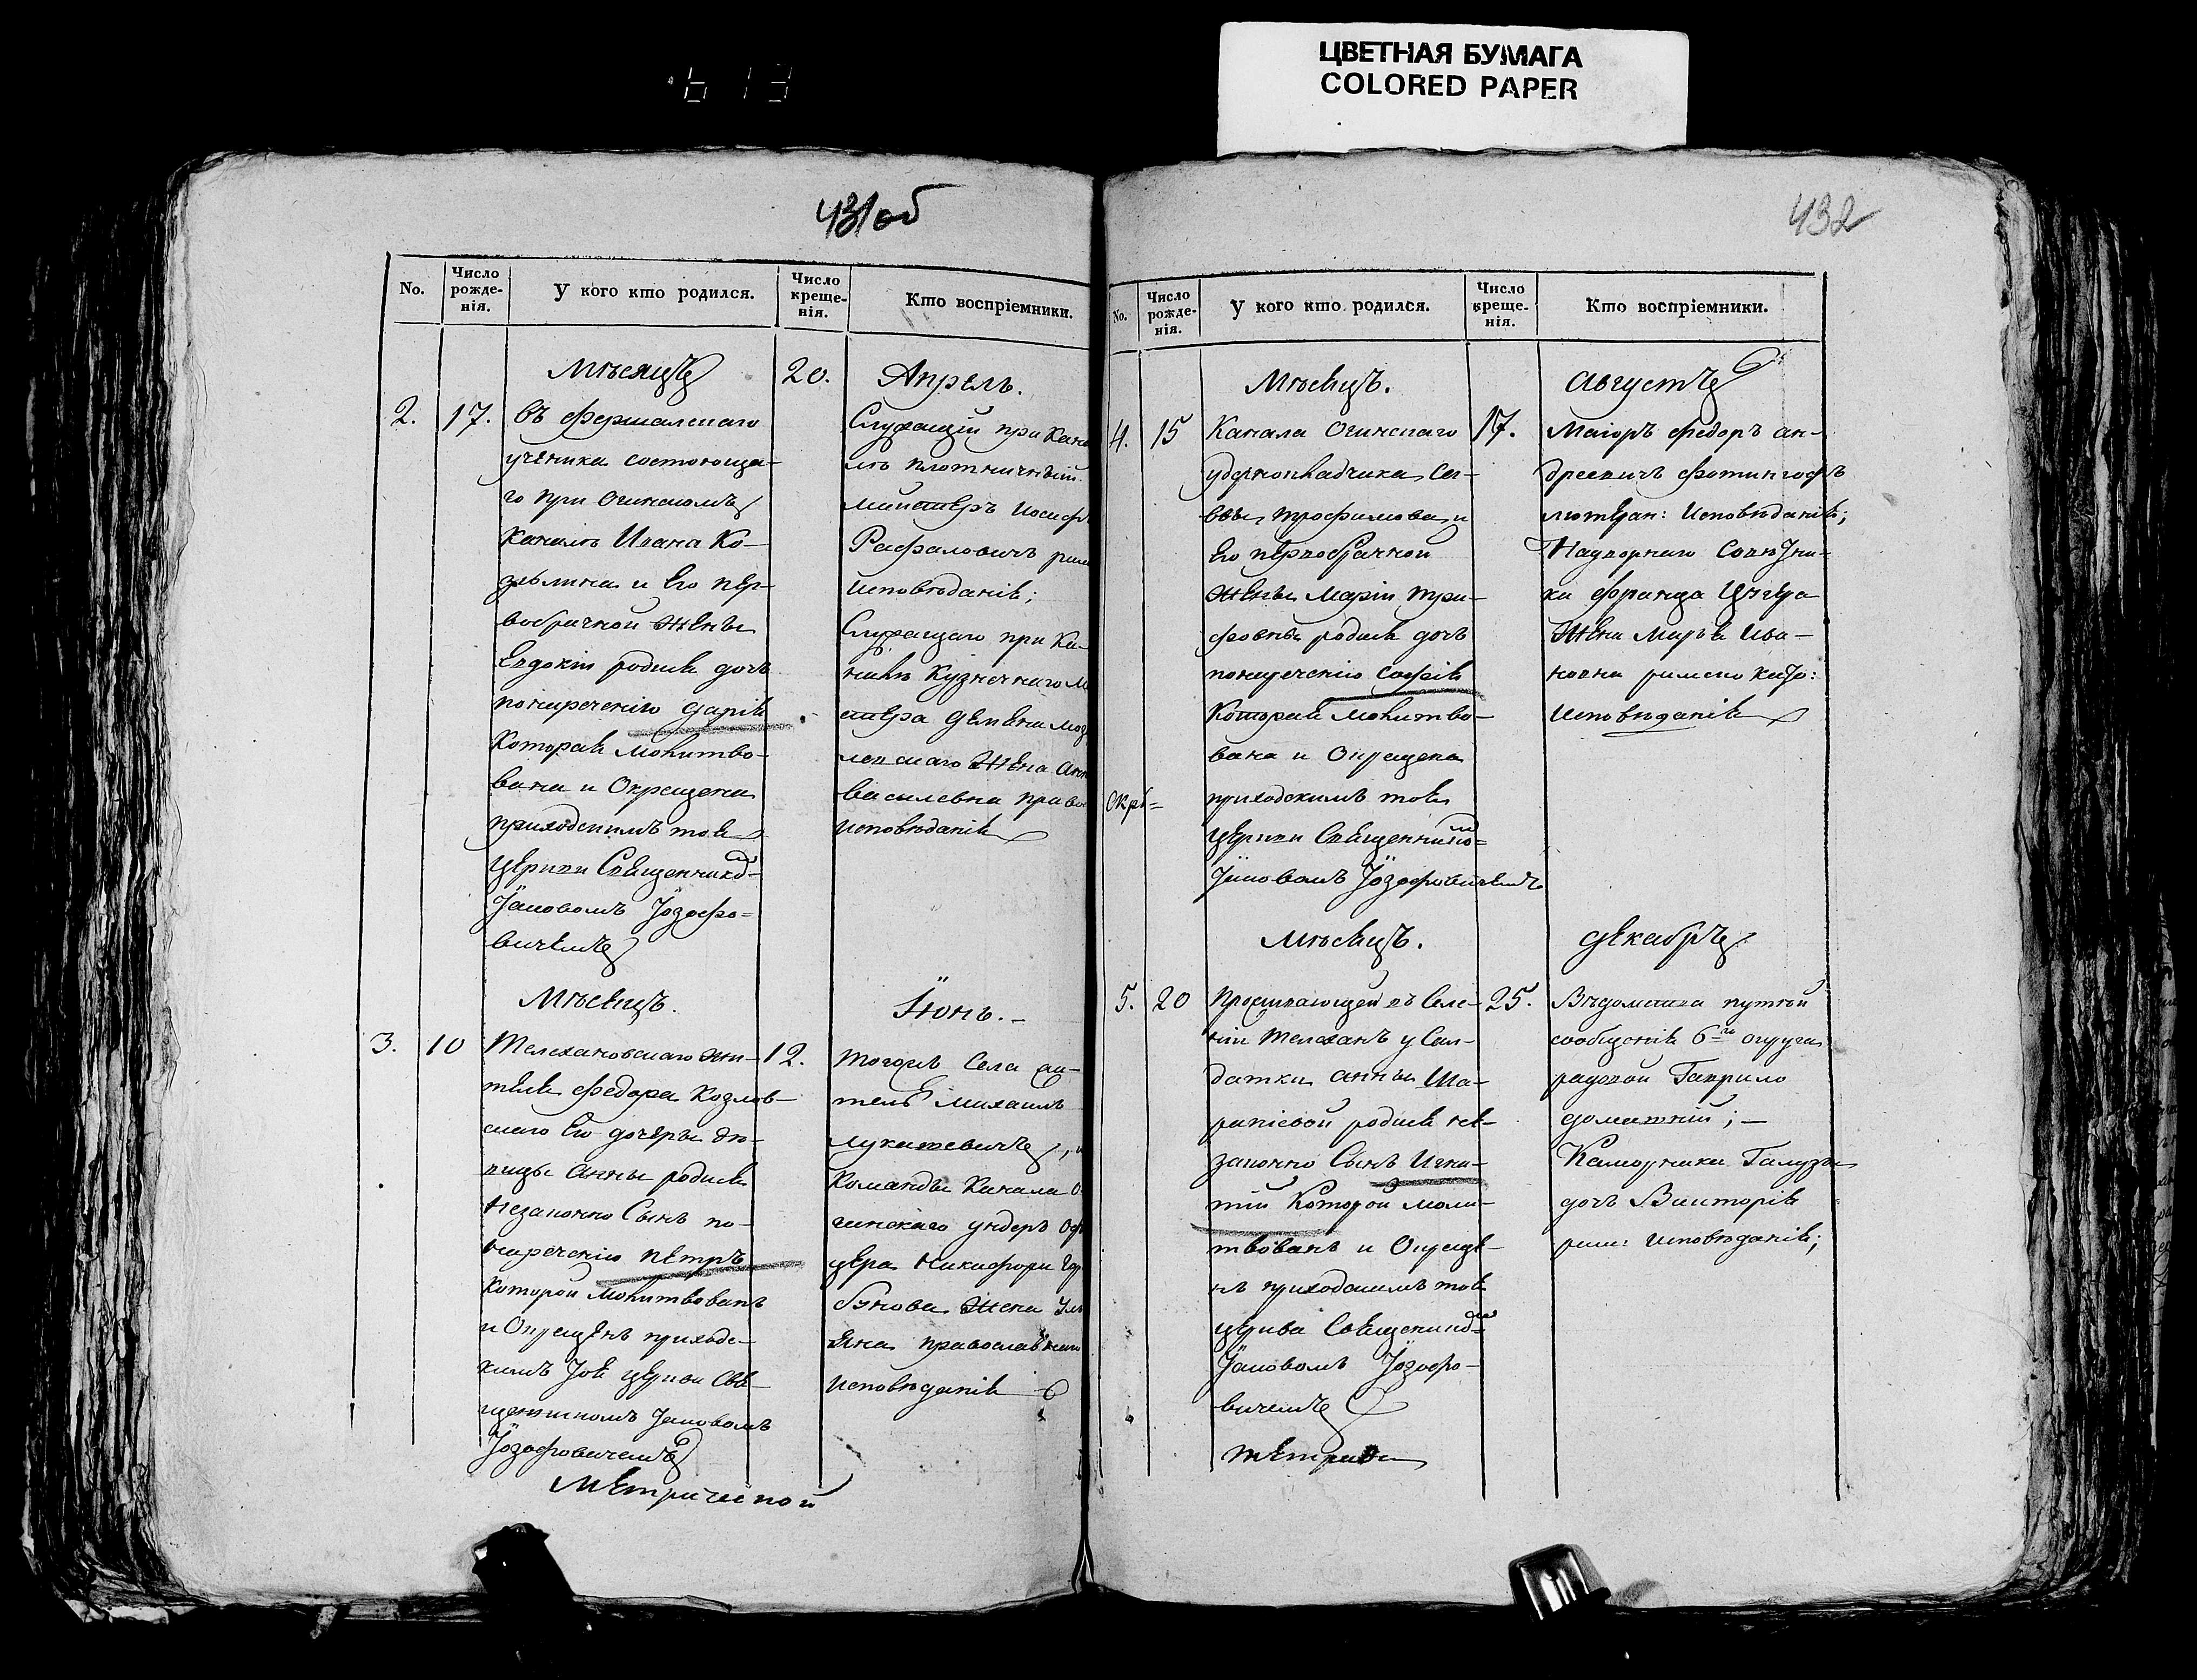 ЦВЕТНАЯ БУМАГА
COLORED PAPER
431об
No.
Число рожде-нія.
У кого кто родился.
Число креще-нія.
Кто воспріемники.
Мѣсяцъ
20.
Апрель.
2.
17.
въ фершалскаго
ученика состоюща-
го при Огинскомъ
каналѣ Ивана Ко-
злина и Его пер-
вобрачной жены
Евдокіи родися дочь
по нареченію Дарія
Которая молитво-
вана и Окрещена
приходскимъ тоя
церкви Священнико-
Іаковомъ Іозефо-
вичемъ
Служащій при Кана
лѣ плотничный
Мистеръ Иосифъ
Рафаловичъ рим
исповѣданія;
Служащаго при Ка-
налѣ Кузнечнаго М
стера Демена Моз
скаго Жена Анн
Василевна право
исповѣданія
Мѣсяцъ.
Іюнь.
3.
10
Телехановскаго жи-
теля Федора Козлов-
скаго Его дочеры дѣ-
вицы Анны родися
Незаконно Сынъ по
нареченію Петръ
Которой Молитвованъ
и Окрещенъ приходс-
кимъ Тоя церкви Свя-
щенникомъ Іаковомъ
Іозефовичемъ
12.
Тогожъ Села жи-
тель Михаилъ
Лукашевичъ, и
Команды Канала О
гинскаго ундеръ Оф
цера Никифора Гор
бунова Жена Ул
яна православнаго
исповѣданія
Метрической
432
No.
Число рожде-нія.
У кого кто родился.
Число креще-нія.
Кто воспріемники.
Мѣсяцъ.
Августъ
4.
15
Канала Огинскаго
Трофимова и
Его первобрачной
Жены Маріи Три-
фовны родися дочь
по нареченію Софія
Которая молитво-
вана и Окрещена
приходскимъ тоя
церкви Священнико-
Іаковомъ Іозефовичемъ
17.
Маіоръ Федоръ Ан-
дреевичъ Фотингофъ
лютеран: исповѣданія;
Надворнаго Совѣтни-
ка Франца Цыгра
Жена Марья Ива-
новна римско Като:
исповѣданія
Мѣсяцъ.
Декабръ
5.
20
Проживающей въ Селе-
ніи Телеханъ у Сол-
датки Анны Ша-
рапіевой родися не-
законно Сынъ Игна-
тій Которой моли-
твованъ и Окреще-
нъ приходскимъ тоя
церкви Священнико-
Іаковомъ Іозефо-
вичемъ
25.
Вѣдомства путей
сообщенія 6го округа
рядовой Гаврило
Доматкій;
Каморника Галузы
дочь Викторія
рим: исповѣданія;